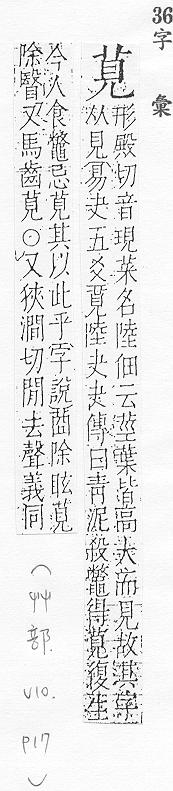 36字 彙
莧 形殿切音現菜名陸佃云莖葉皆高大而見故其字
从見易夬五爻莧陸夬夬傳曰靑泥殺鼈得莧復生
今人食鼈忌莧其以此乎字說莧除眩莧
除瞖又馬齒莧○又狹澗切閒去聲義同
(艸部. v10. p17)